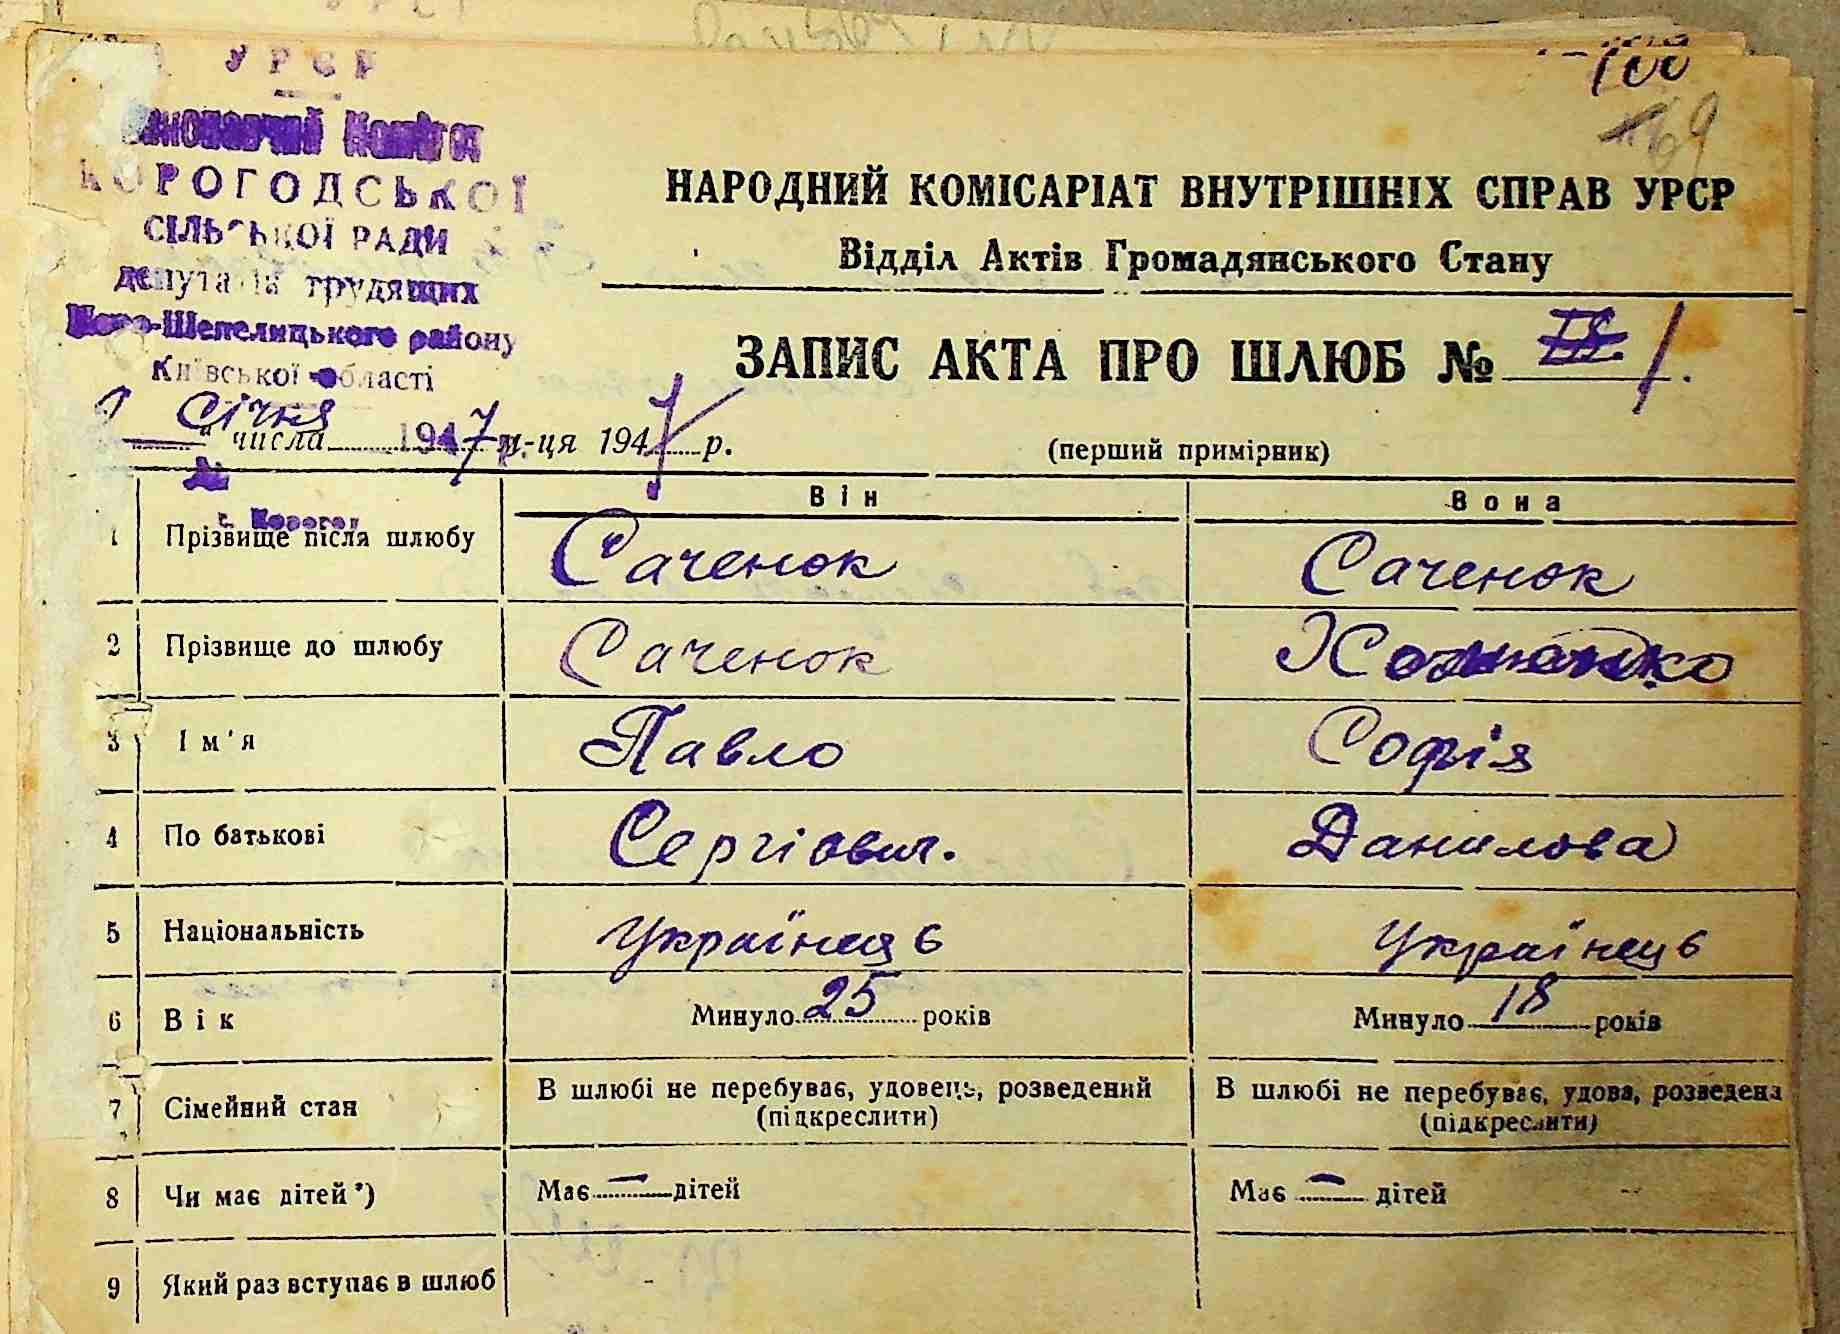 УРСР
Виконавчий Комітет
КОРОГОДСЬКОЇ
СІЛЬСЬКОЇ РАДИ
депутатів трудящих
Ново-Шепелицького району
Київської області
100
69
НАРОДНИЙ КОМІСАРІАТ ВНУТРІШНІХ СПРАВ УРСР
Відділ Актів Громадянського Стану
ЗАПИС АКТА ПРО ШЛЮБ № 1.
січня
" числа 1947 м-ця 1947 р.
(перший примірник)
№
с. Корогод
Він Вона
1 Прізвище після шлюбу Саченок Саченок
2 Прізвище до шлюбу Саченок
3 Ім'я Павло Софія
4 По батькові Сергіович. Данилова
5 Національність Українець Українець
6 Вік Минуло 25 років Минуло 18 років
7 Сімейний стан В шлюбі не перебуває, удовець, розведений В шлюбі не перебуває, удова, розведена
(підкреслити) (підкреслити)
8 Чи має дітей*) Має — дітей Має — дітей
9 Який раз вступає в шлюб